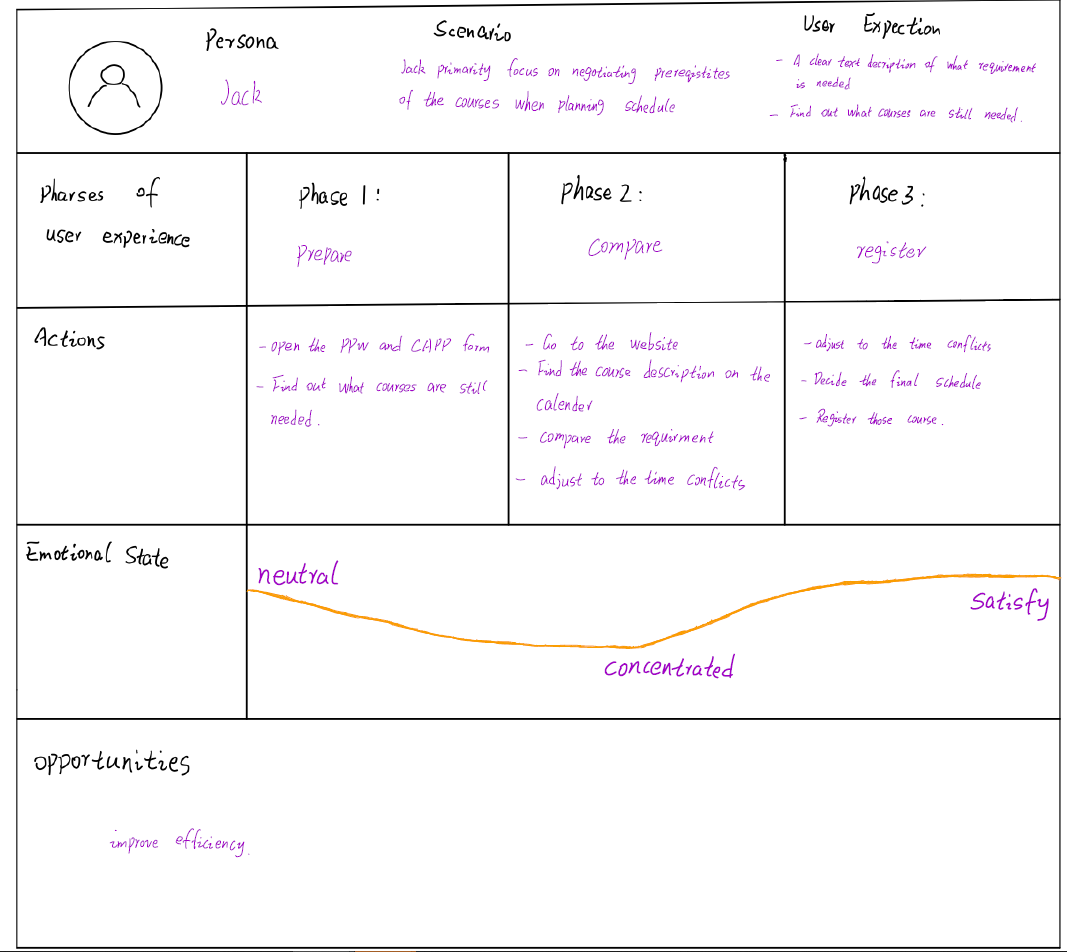 Persona
Jack
Scenario
Jack primarity focus on negotiating prereqistites
of the courses when planning schedule
User Expection
- A clear text decription of what requirement
is needed
- Find out what courses are still needed.
Pharses of
user experience
Phase 1:
Prepare
Phase 2:
Compare
Phase 3:
register
Actions
- open the PPW and CAPP form
- Find out what courses are still
needed.
- Go to the website
- Find the course description on the
calender
- compare the requirment
- adjust to the time conflicts
- adjust to the time conflicts
- Decide the final schedule
- Register those course.
Emotional State
neutral
concentrated
Satisfy
opportunities
improve efficiency.